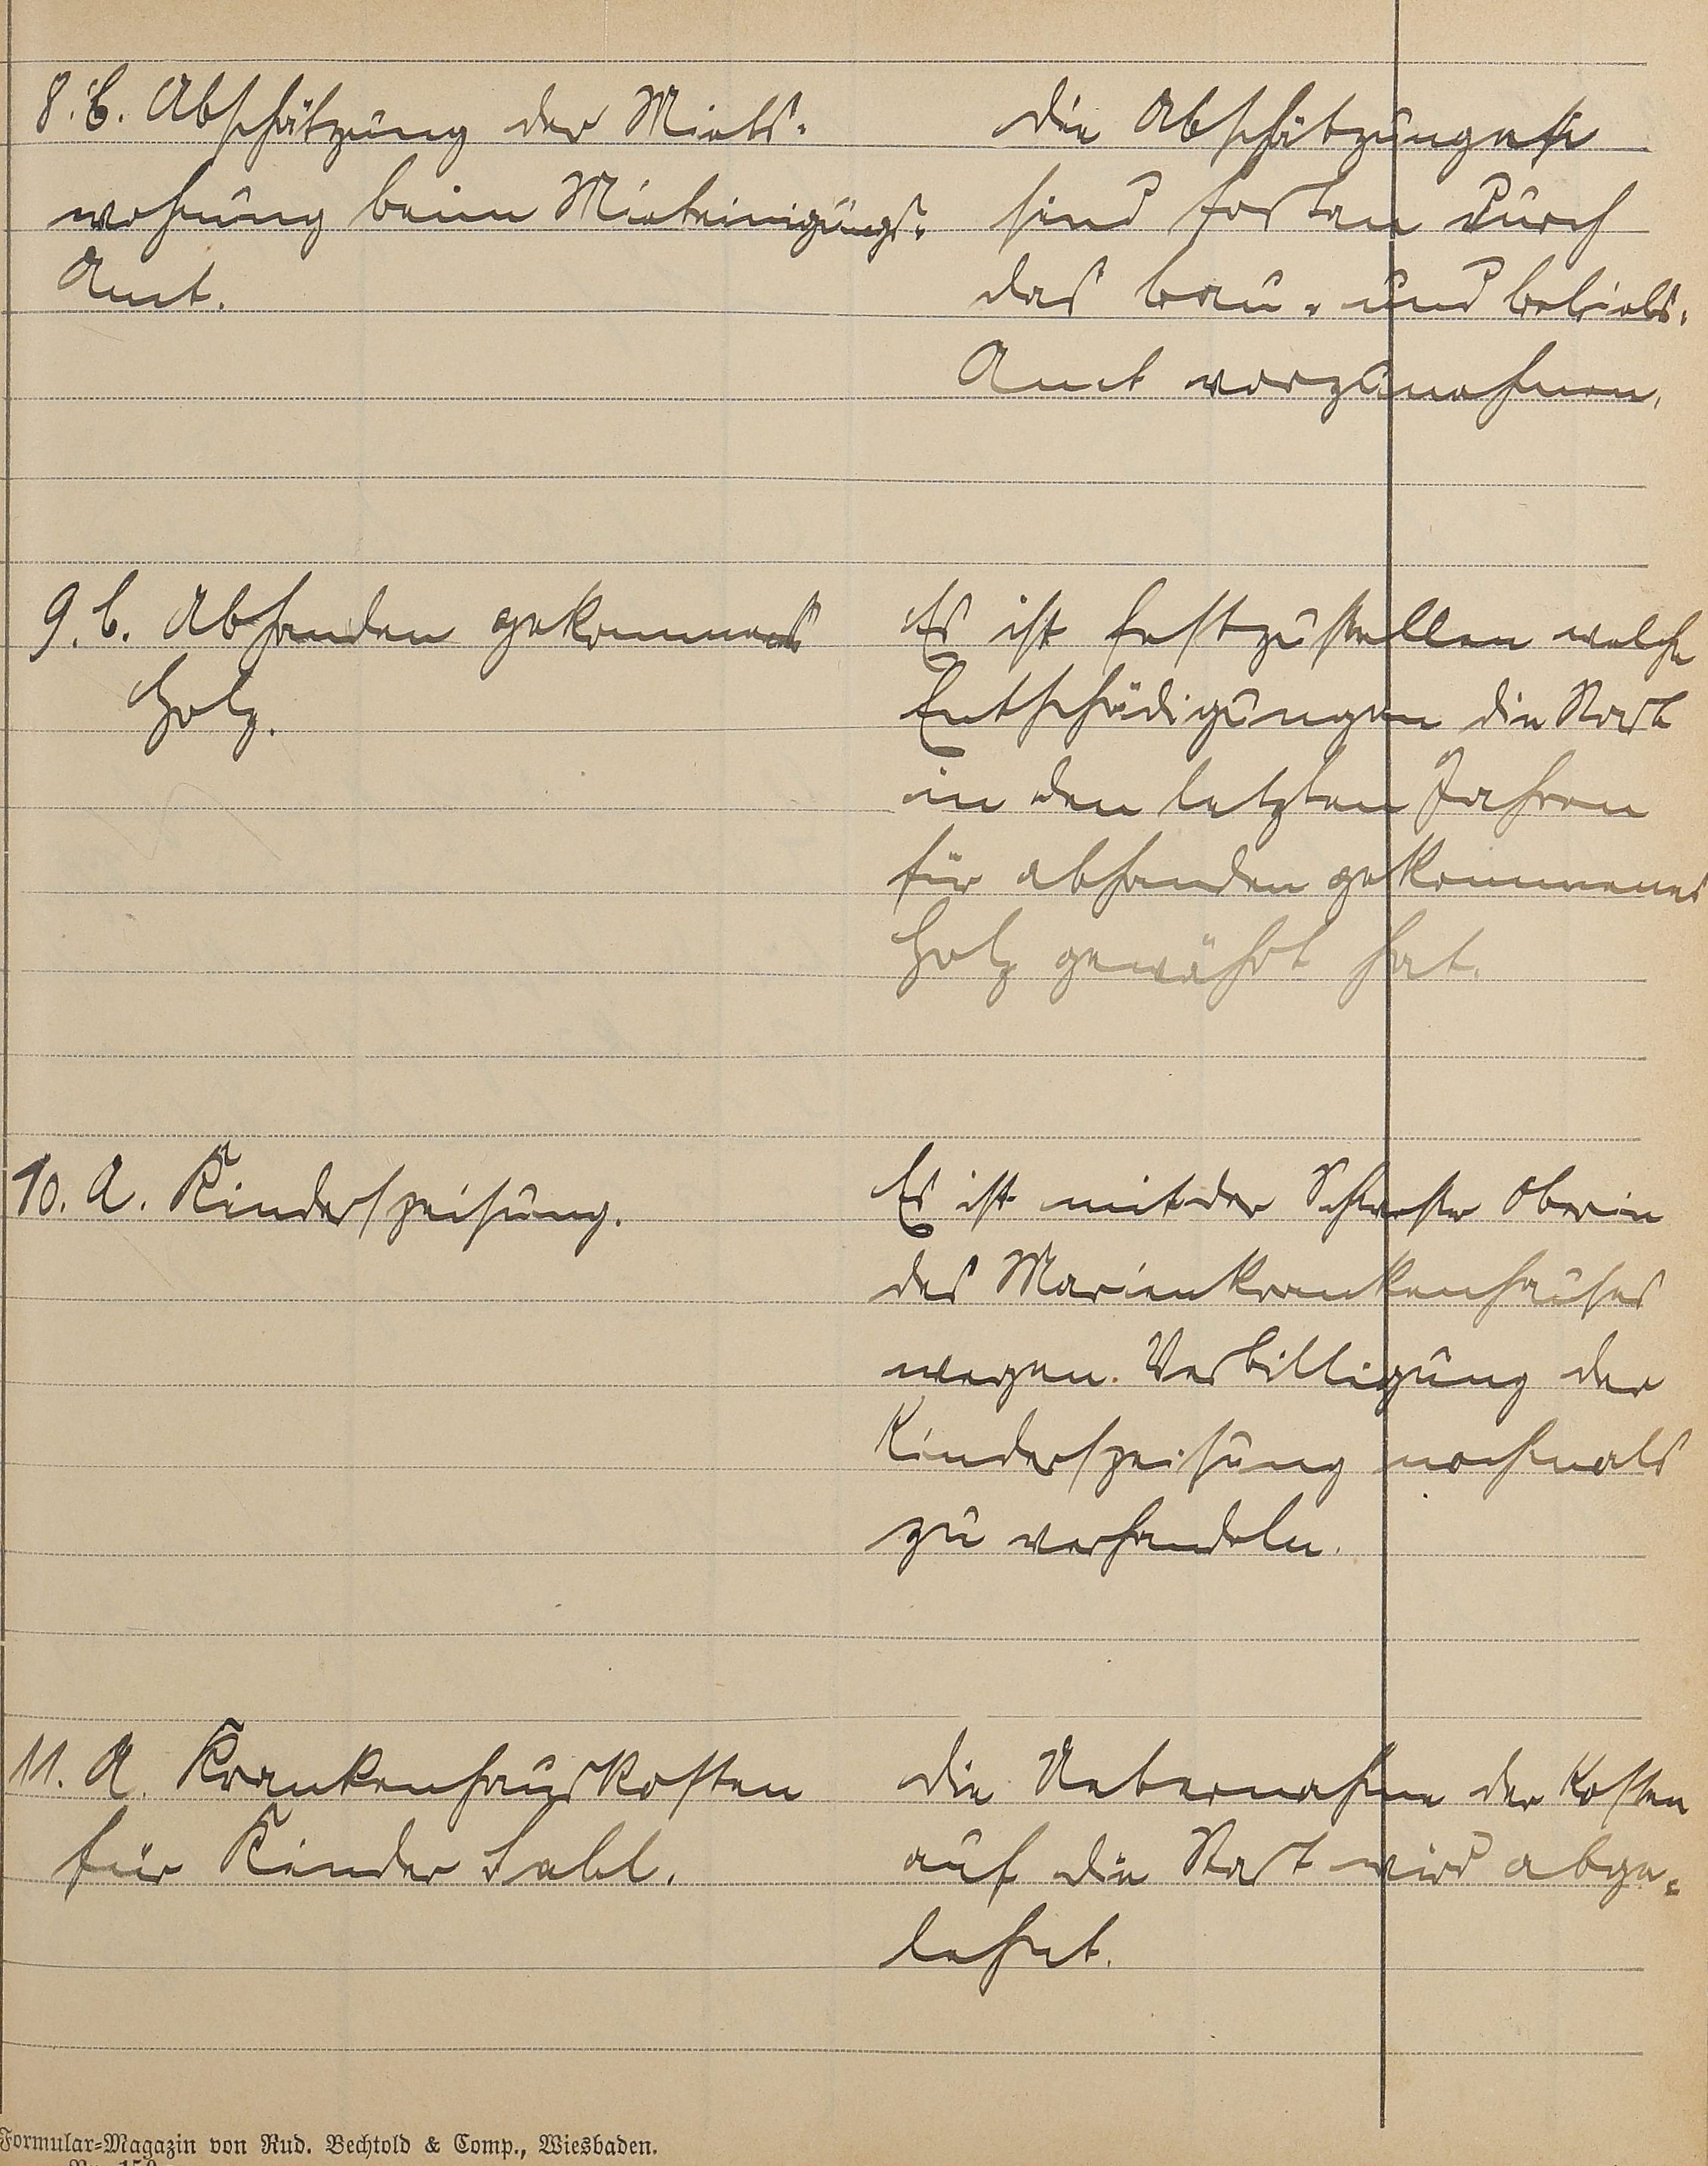 8. C. Abschätzung der Miets-
wohnung beim Mieteinigungs-
Amt.
Die Abschätzungen
sind kostenlos durch
das Bau- und Betriebs-
Amt vorzunehmen.
9. C. Abhanden gekommenes
Holz.
Es ist festzustellen welche
Entschädigungen die Stadt
in den letzten Jahren
für abhanden gekommenes
Holz gewährt hat.
10. A. Kinderspeisung.
Es ist mit der Schwester Oberin
des Marienkrankenhauses
wegen Verbilligung der
Kinderspeisung nochmals
zu verhandeln.
11. A. Krankenhauskosten
für Kinder
Die Uebernahme der Kosten
auf die Stadt wird abge-
lehnt.
Formular-Magazin von Rud. Bechtold & Comp., Wiesbaden.